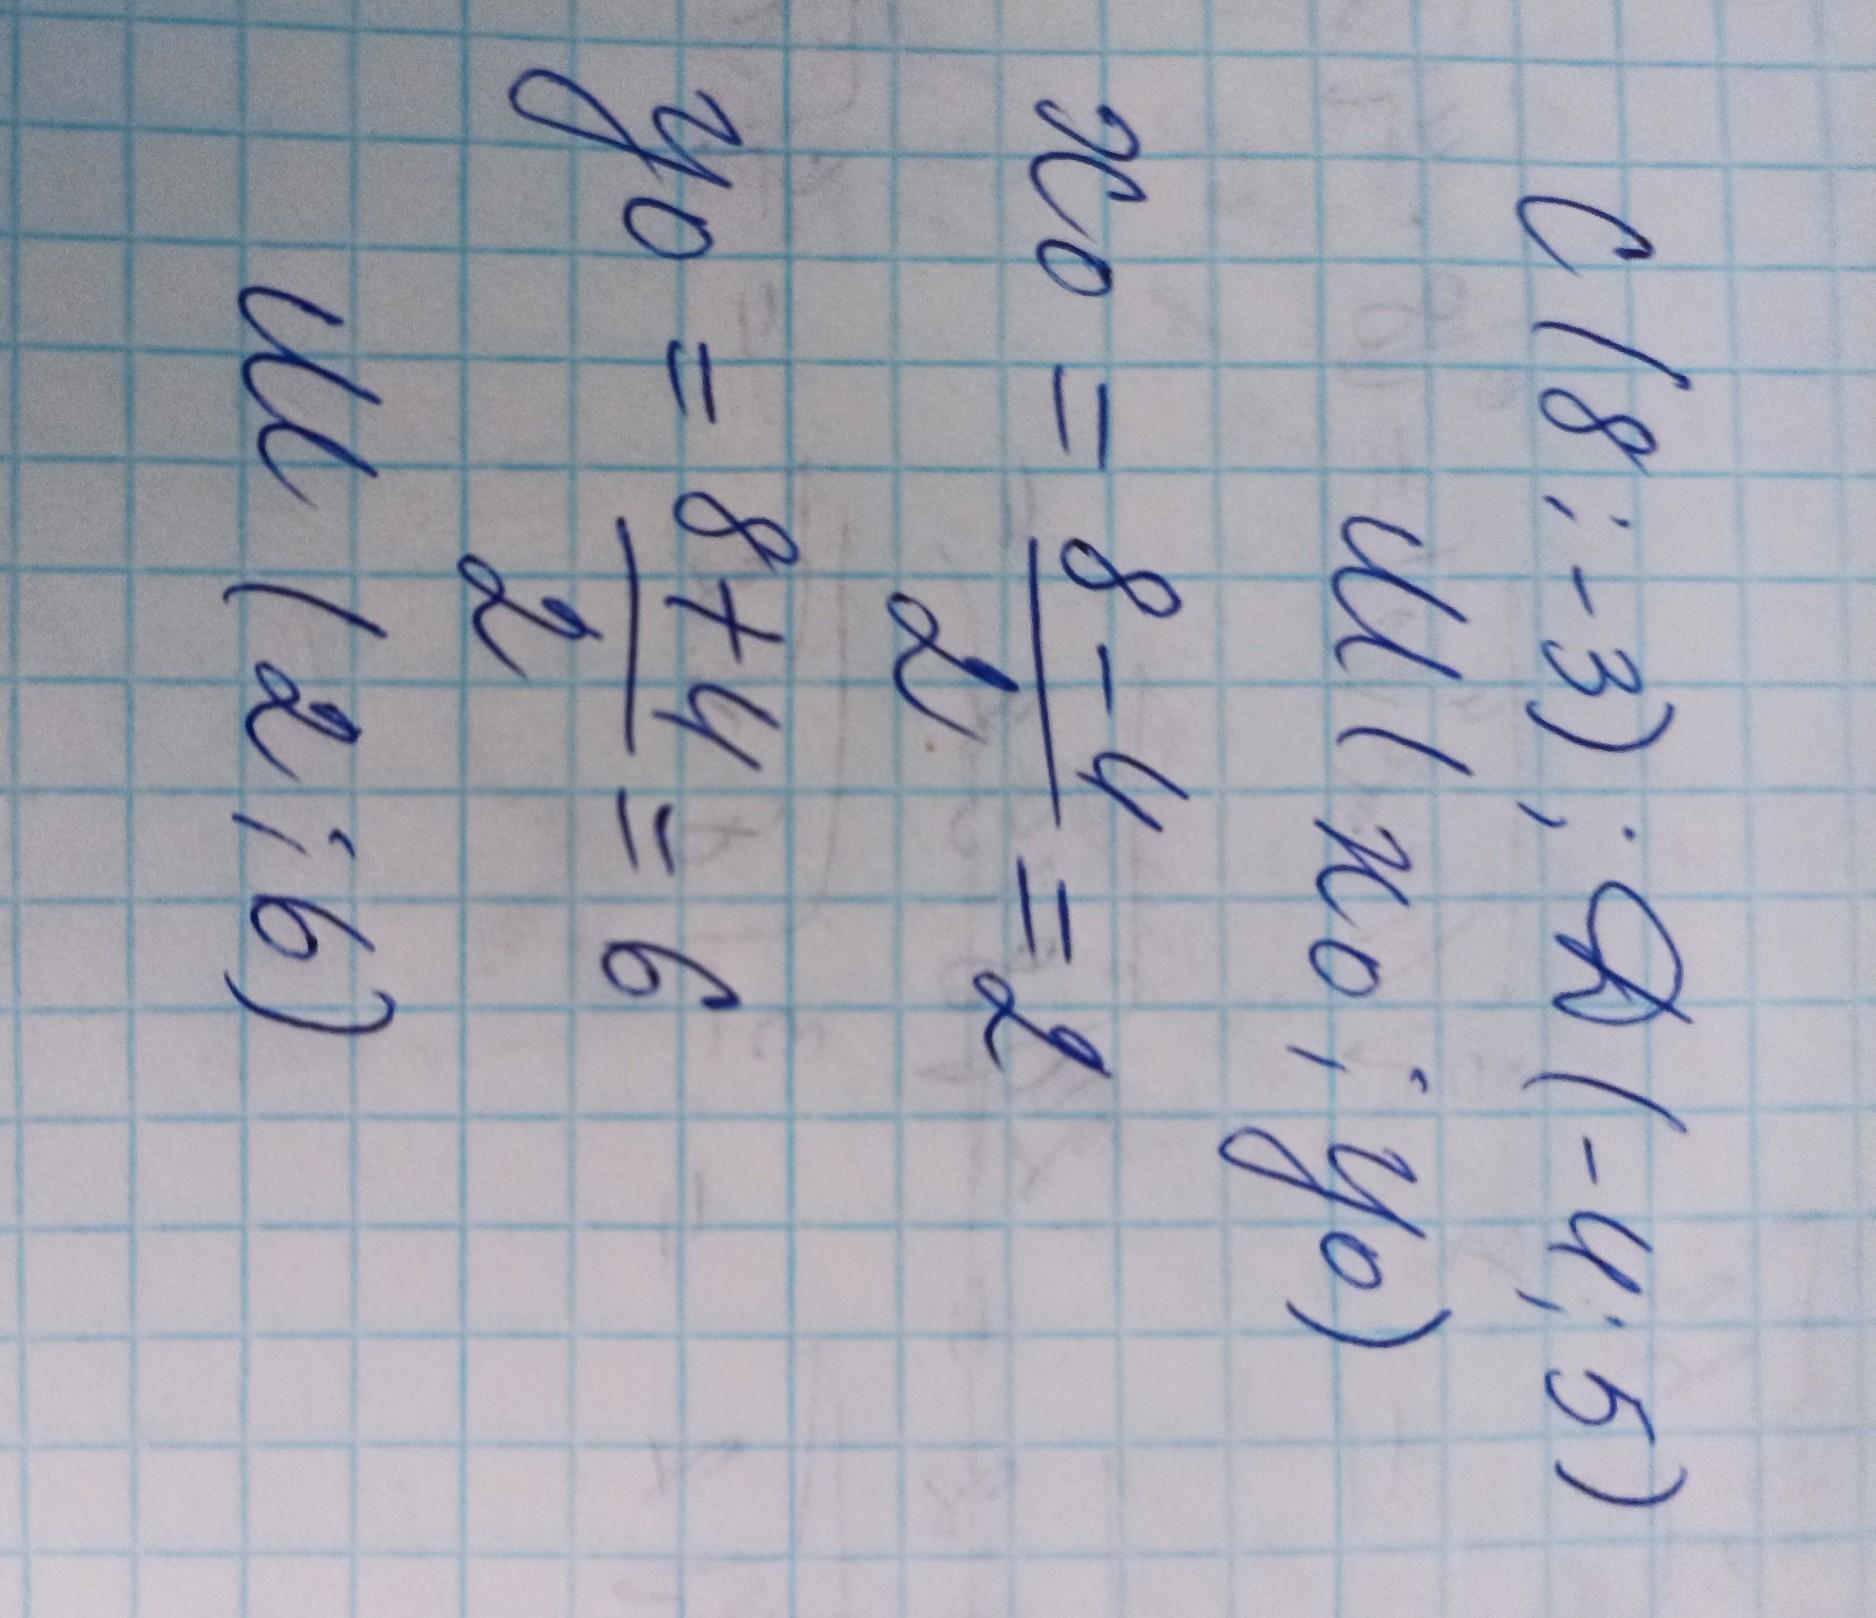 C(8;-3); D(-4;5)
M(x0; y0)
x0 = 8-4/2 = 2
y0 = 8+4/2 = 6
M(2;6)